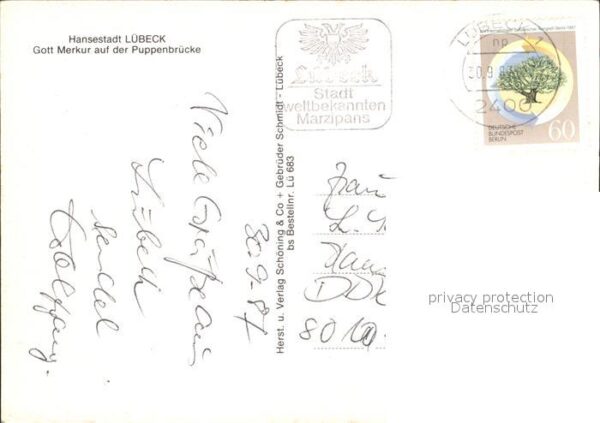 Hansestadt LÜBECK
Gott Merkur auf der Puppenbrücke
Lübeck
Stadt
weltbekannten
Marzipans
LÜBECK
2400
60
DEUTSCHE
BUNDESPOST
BERLIN
30.9.87
Viele Grüße aus
Lübeck
sendet
Wolfgang.
Herst. u. Verlag Schöning & Co + Gebrüder Schmidt - Lübeck
bs Bestellnr. Lü 683
Frau
DDR
8010
privacy protection
Datenschutz